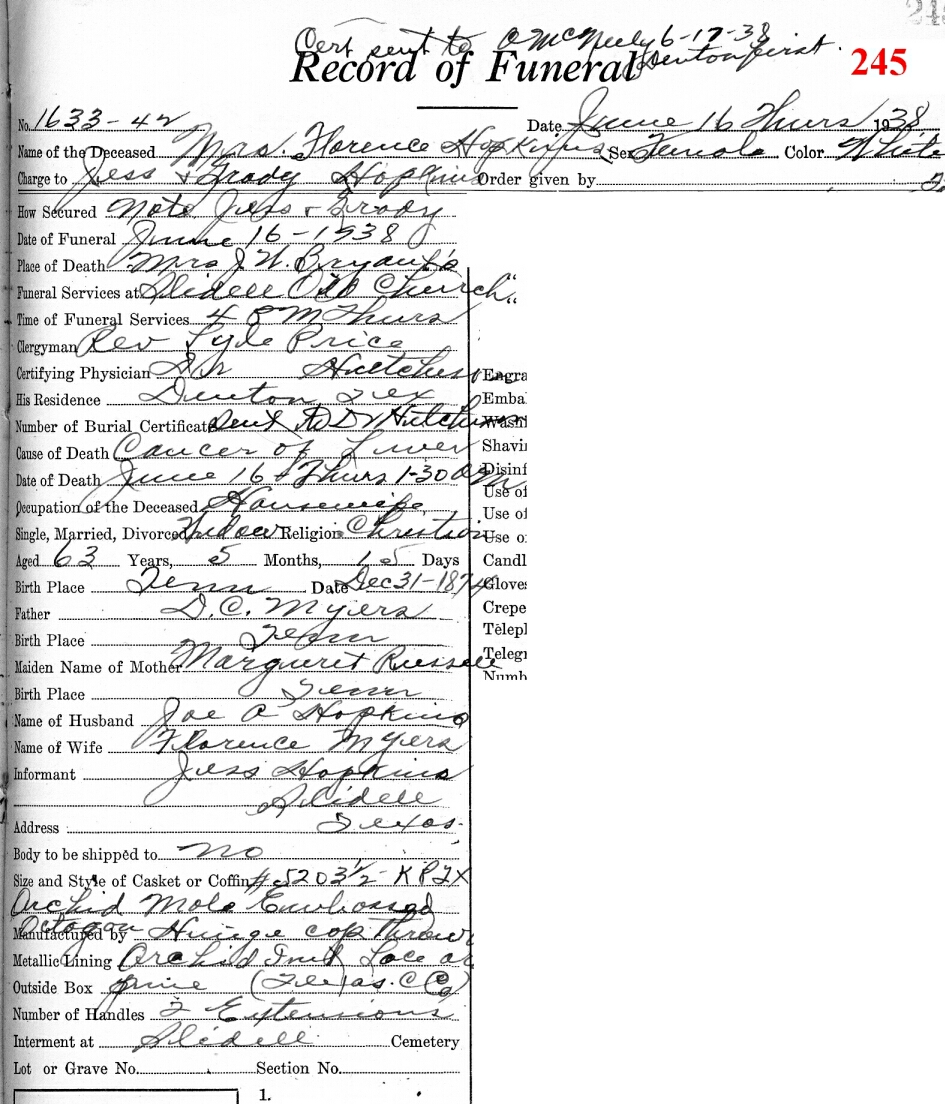 Cert sent to O McNeely 6-17-38
Denton first.
Record of Funeral
245
No. 1633-42
Date June 16 Thurs 1938
Name of the Deceased Mrs. Florence Hopkins Sex Female Color White
Charge to Jess & Grady Hopkins Order given by
How Secured Note Jess & Grady
Date of Funeral June 16-1938
Place of Death Mrs J.W. Bryant's
Funeral Services at Slidell Church
Time of Funeral Services 4 PM Thurs
Clergyman Rev Lyle Price
Certifying Physician Dr Hutcheson
His Residence Denton Tex
Number of Burial Certificate Sent to Dr Hutcheson
Cause of Death Cancer of Liver
Date of Death June 16 Thurs 1-30 am
Occupation of the Deceased Housewife
Single, Married, Divorced Widow Religion Christian
Aged 63 Years, 5 Months, 15 Days
Birth Place Tenn Date Dec 31-1874
Father D.C. Myers
Birth Place Tenn
Maiden Name of Mother Margueret Russell
Birth Place Tenn
Name of Husband Joe A Hopkins
Name of Wife Florence Myers
Informant Jess Hopkins
Slidell
Address Texas.
Body to be shipped to no
Size and Style of Casket or Coffin # 5203½- KPTX
Orchid Mole Embossed
Octogan
Manufactured by Hinge cap
Metallic Lining Orchid Lace
Outside Box pine (Texas C Co)
Number of Handles 2 Extensions
Interment at Slidell Cemetery
Lot or Grave No. Section No.
1.
Engra
Embal
Wash
Shavin
Disinf
Use of
Use of
Use o
Candl
Gloves
Crepe
Telepl
Telegr
Numb